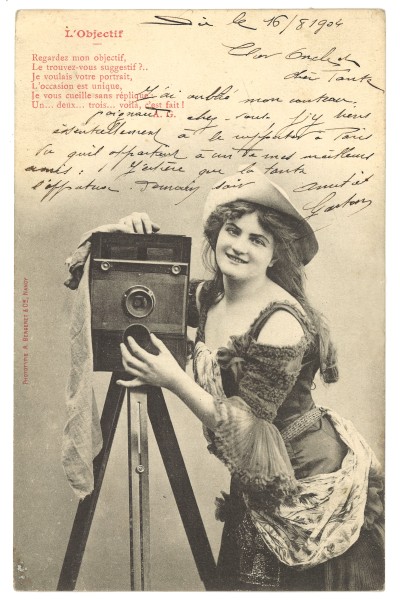 L'Objectif
Regardez mon objectif,
Le trouvez-vous suggestif ?..
Je voulais votre portrait,
L'occasion est unique,
Je vous cueille sans réplique !
Un... deux... trois... voilà, c'est fait !
A. G.
le 16/8 1904
Cher Oncle et
Tante
J'ai oublié mon couteau
poignard chez vous. J'y tiens
essentiellement à le rapporter à Paris
vu qu'il appartient à un de mes meilleurs
amis : que la tante
soir amitiés
Gaston
PHOTOTYPIE A. BERGERET & CIE, NANCY